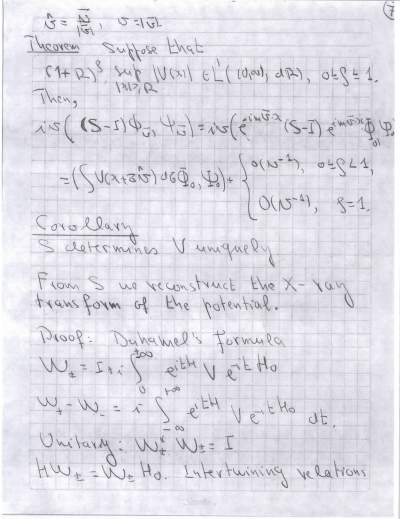 7
v̂ = v̄/|v̄|, v=|v̄|
Theorem Suppose that
(1+R)^ρ sup_{|x|≥R} |V(x)| ∈ L¹((0,∞), dR), 0≤ρ≤1.
Then,
iv((S-I)Φ_v̄, Ψ_v̄) = iv(e^{-imv̄·x}(S-I)e^{imv̄·x}Φ_0, Ψ_0)
= (∫V(x+zv̂)dz Φ_0, Ψ_0) + { o(v⁻¹), 0≤ρ<1,
O(v⁻¹), ρ=1.
Corollary
S determines V uniquely
From S we reconstruct the X-ray
transform of the potential.
Proof: Duhamel's formula
W_± = I+i ∫_0^{±∞} e^{itH} V e^{-itH_0}
W_+ - W_- = i ∫_{-∞}^{+∞} e^{itH} V e^{-itH_0} dt.
Unitary: W_±^* W_± = I
HW_± = W_± H_0. Intertwining relations